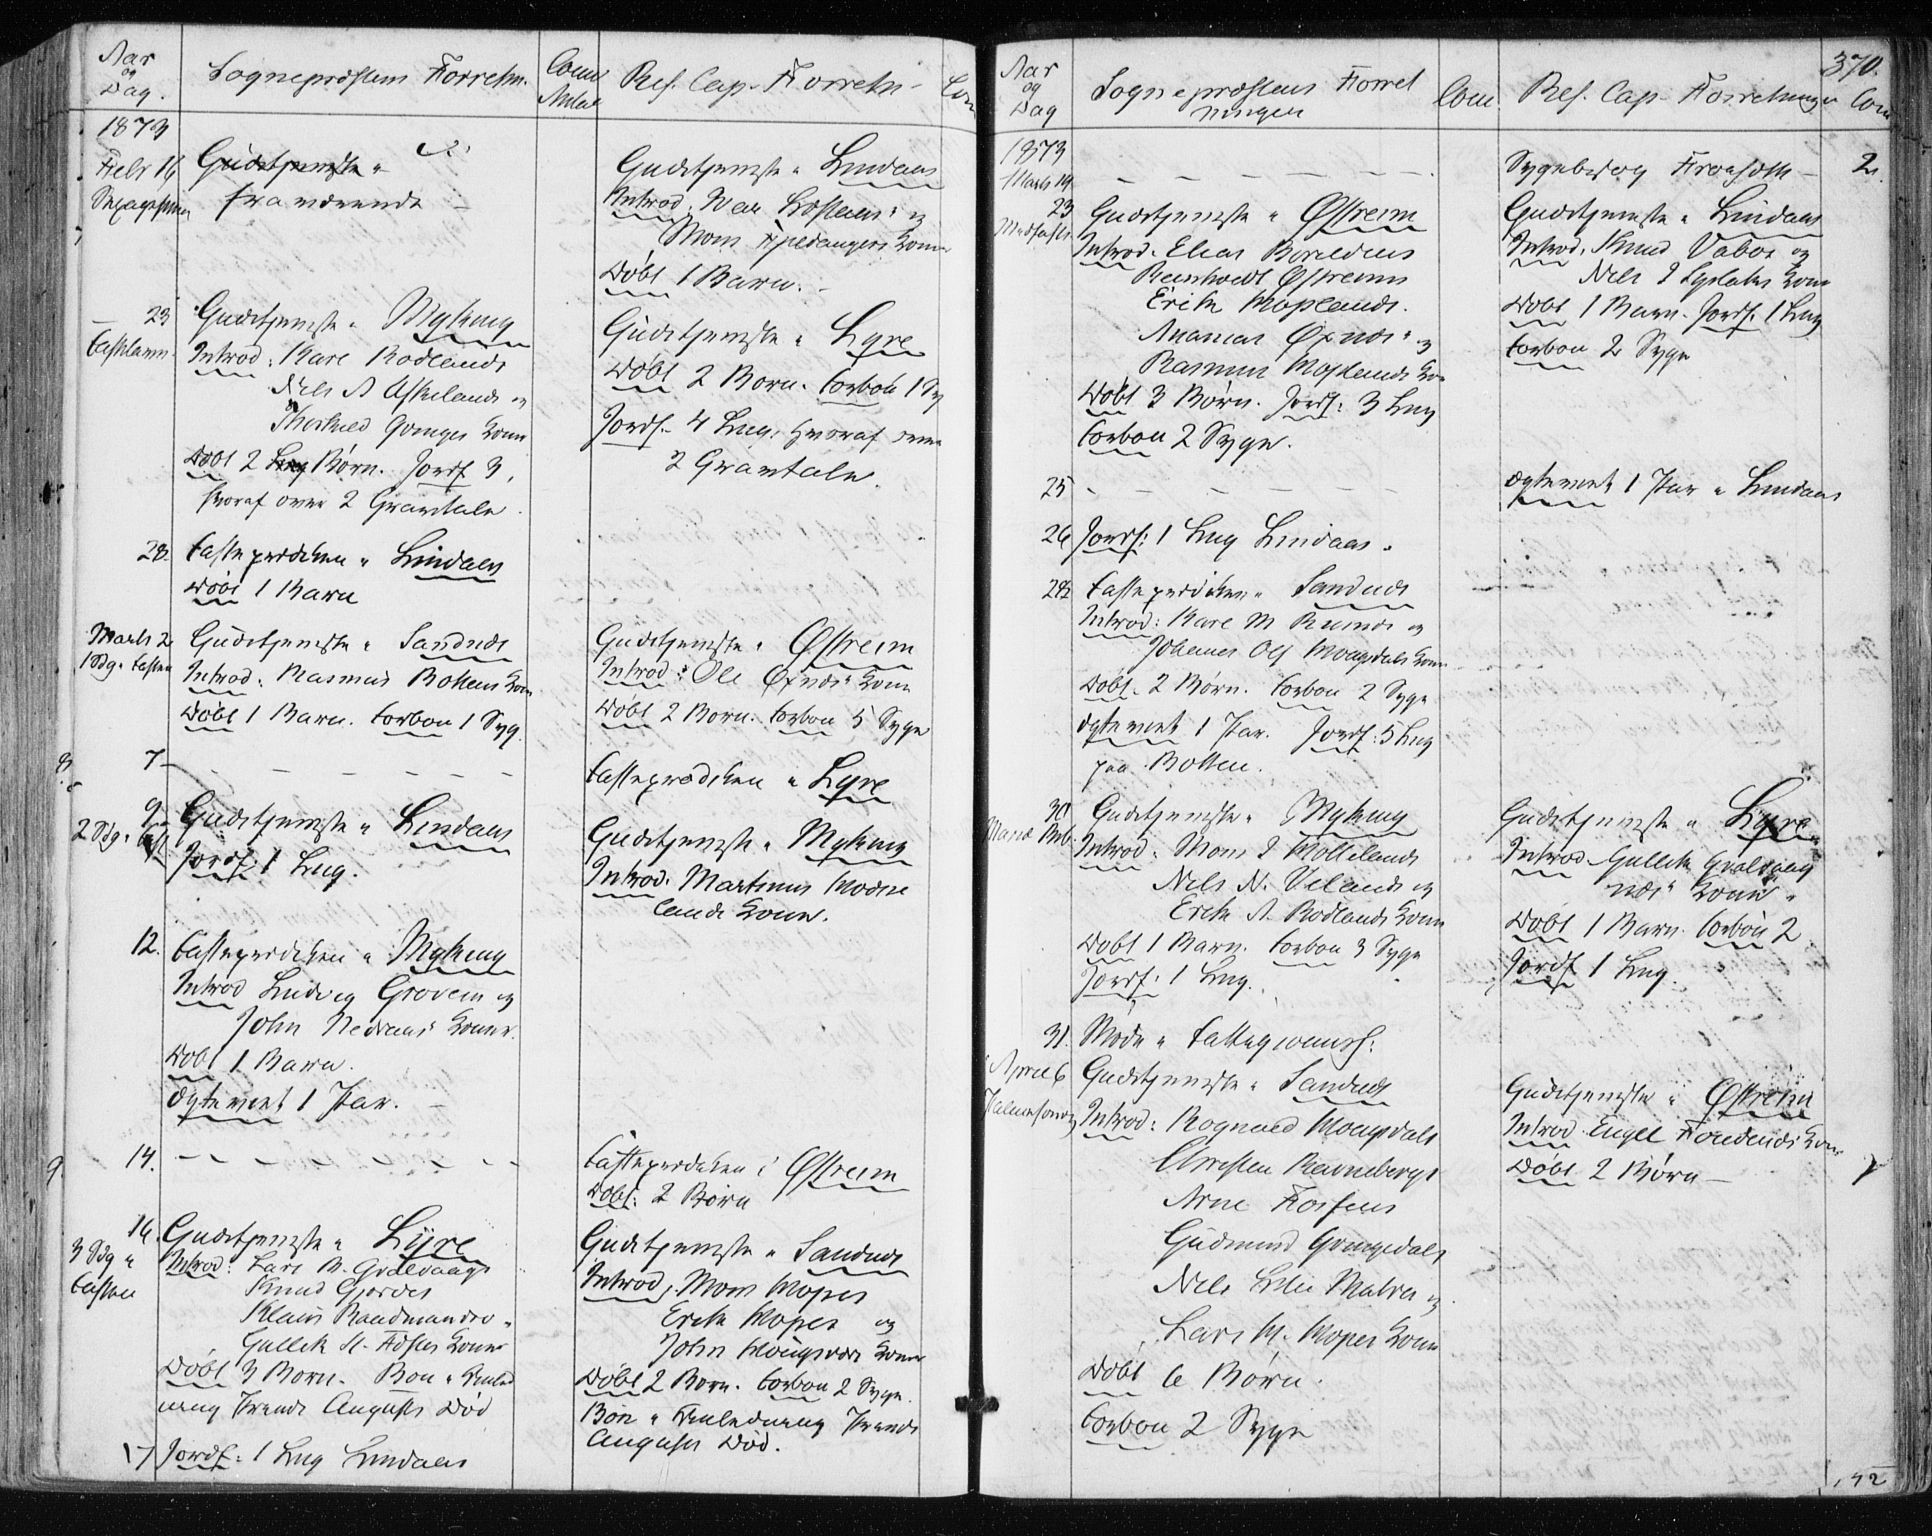 Aar
og
Dag.
Sognepræstens Forretn.
Com
Antal
Res. Cap. Forretn
Com
1873
Febr 16
Gudstjeneste
fraværende
Gudstjeneste i Lindaas
Introd.
Mons Fjeldangers Koner
Døbt 1 Barn.
23
Fastelavn.
Gudstjeneste i Myking
Introd: Kare Rodlands
Niels A Askelands og
Thorkild Konr
Døbt 2 Børn. Jordf 3,
hvoraf over 2 Gravtale.
Gudstjeneste i Lyre
Døbt 2 Born. Forbøn 1 Sy
Jordf. 4 Lig, hvoraf over
2 Gravtale.
28.
Fasteprædiken i Lindaas
Døbt 1 Barn
Marts 2
1 Sdg i Fasten
Gudstjeneste i Sandnes
Introd: Rasmus Bottens Kone
Døbt 1 Barn. Forbøn 1 Syg.
Gudstjeneste i Østreim
Introd: Ole Kone
Døbt 2 Born. Forbøn 5 Syge
8.
7
Fasteprædiken i Lyre
9
2 Sdg i Fast
Gudstjeneste i Lindaas
Jordf: 1 Lig.
Gudstjeneste i Myking
Introd. Martinus
lands Kone.
12.
Fasteprædiken i Myking
Introd Ludvig Grovem og
John Nedraas' Koner.
Døbt 1 Barn.
Ægteviet 1 Par.
9.
14.
Fasteprædiken i Østreim
Døbt: 2 Børn
16.
3 Sdg i
Fasten
Gudstjeneste i Lyre
Introd: Lars B. Gvalvaags
Knud Gjerdes
Klaus
Gullik Koner
Døbt 3 Born. Bøn i Anled
ning Prinds Augusts Død
Gudstjeneste i Sandnes
Introd. Mons Mopes
Erik Mopes og
John Koner
Døbt 2 Born. Forbøn 2 Syge.
Bøn i Anledning Prinds
Augusts Død.
17
Jordf: 1 Lig Lindaas
370.
Aar
og
Dag
Sognepræstens Forret
ninger
Com.
Res. Cap. Forretninger
Com
1873
Marts 19
Sygebesøg
2.
23
Midfaste
Gudstjeneste i Østreim
Introd. Elias
Reinholdt Østreims
Erik Moplands.
Ananias og
Rasmus Moplands Ko
Døbt 3 Børn. Jordf: 3 Lig
Forbøn 2 Syge.
Gudstjeneste i Lindaas
Introd. Knud Vabøe og
Nils I Koner
Døbt 1 Barn. Jordf. 1 Lig
Forbøn 2 Syge
25
Ægteviet 1 Par i Lindaas
26
Jordf: 1 Lig Lindaas.
28
Fasteprædiken i Sandnes
Introd: Kare M og
Johannes Ols Koner
Døbt. 2 Børn. Forbøn 2 Syge
Ægteviet 1 Par. Jordf: 5 Lig
paa Botten.
30
Mariæ Beb.
Gudstjeneste i Myking
Introd: Mons I
Nils N. Velands og
Erik A. Rodlands Koner
Døbt 1 Barn. Forbøn 3 Syge
Jordf: 1 Lig.
Gudstjeneste i Lyre
Introd. Gullik Gvalvaag
næs' Kone
Døbt 1 Barn. Forbøn 2
Jordf 1 Lig.
31.
Møde i Fattigcomis:
April 6
Palmesøndag
Gudstjeneste i Sandnes
Introd: Rognald Mongsdals
Christen
Arne
Gudmund
Nils Lille Matres og
Lars M. Mopes Koner
Døbt 6 Børn.
Forbøn 2 Syge
Gudstjeneste i Østreim
Introd. Engel Kone
Døbt 2 Børn